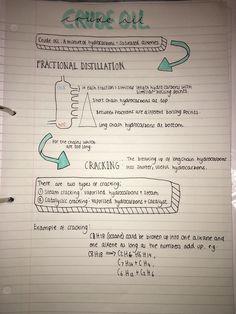 CRUDE OIL
Crude oil: A mixture of hydrocarbons - saturated alkanes
FRACTIONAL DISTILLATION
In each fraction: similar length hydrocarbons with
similar boiling points.
Short chain hydrocarbons at top.
Between fractions are different boiling points.
Long chain hydrocarbons at bottom.
For the chains which
are too long
CRACKING: The breaking up of long chain hydrocarbons
into shorter, useful hydrocarbons.
There are two types of cracking:
① Steam cracking: vaporised hydrocarbons + steam
② Catalytic cracking: vaporised hydrocarbons + catalyst
Example of cracking:
C8H18 (octane) could be broken up into one alkane and
one alkene as long as the numbers add up. e.g
C8H18 → C2H6
C6H12 + C2H6